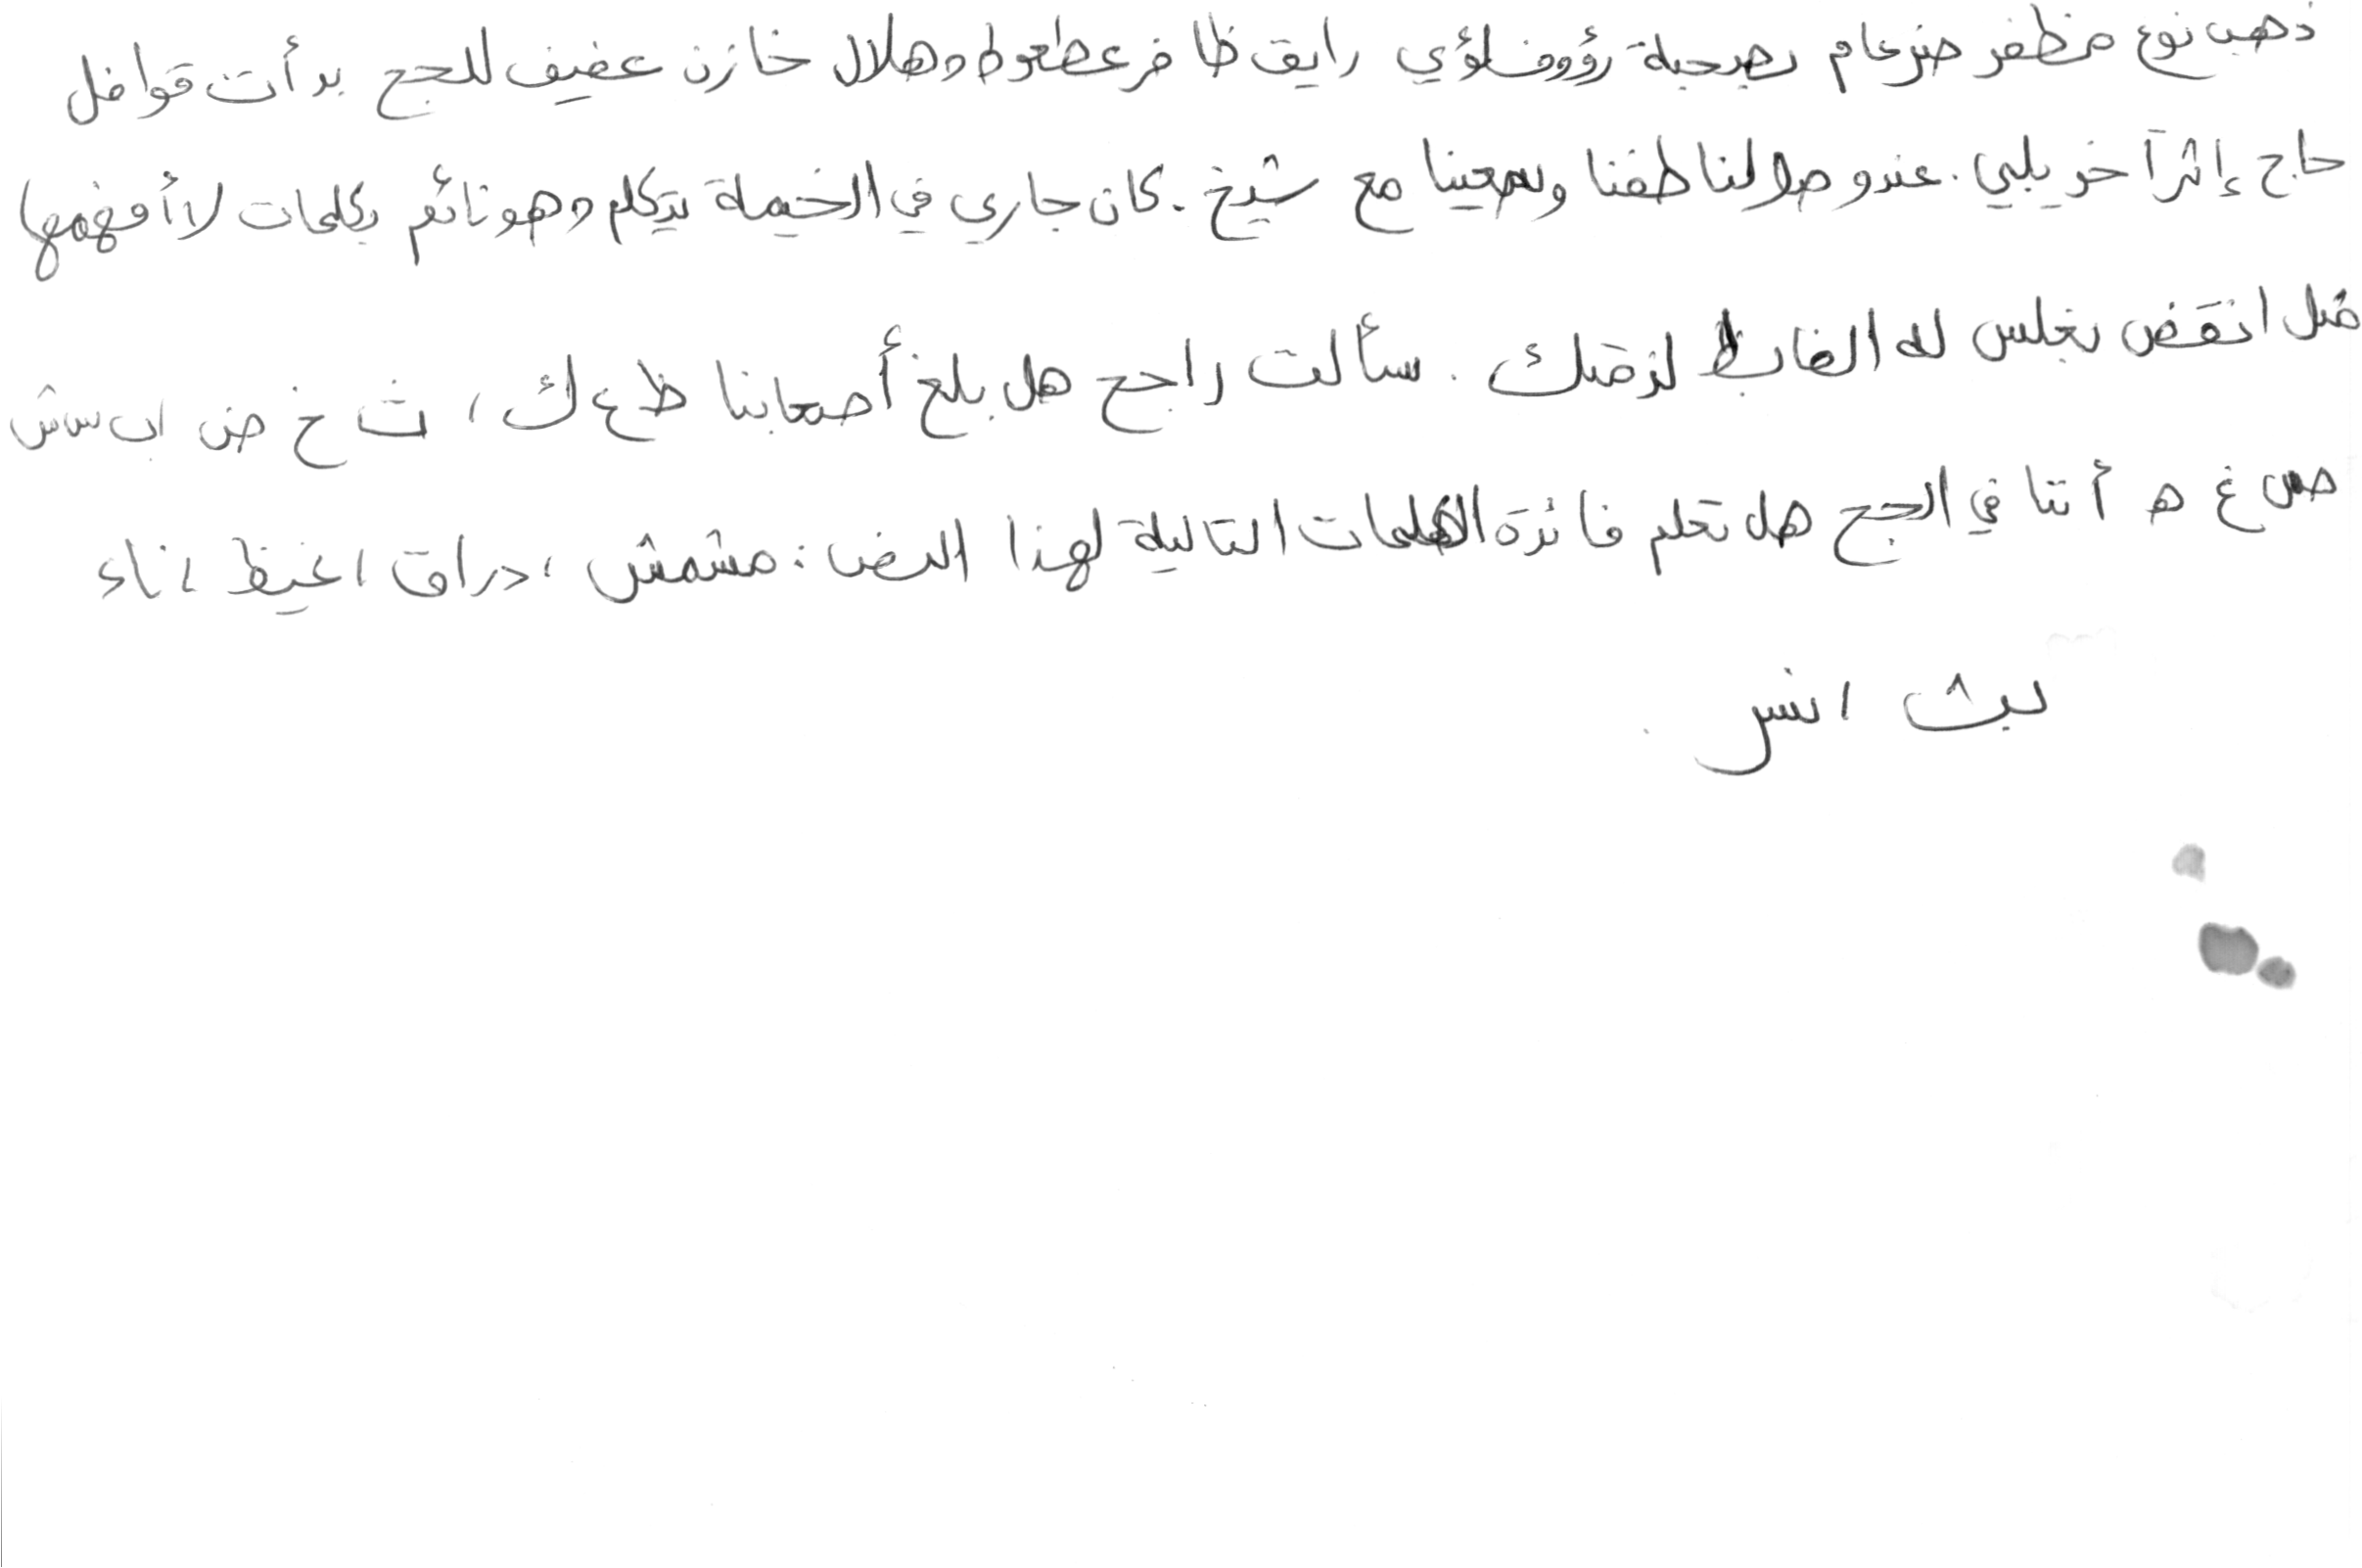 ذهب نوع مظفر ضرغام بصحبة رؤوف لؤي رايق ظافر عطعوط وهلال خازن عفيف للحج بدأت قوافل
حاج إثر آخر يلبي. عند وصلالنا طفنا وسعينا مع شيخ. كان جاري في الخيمة يتكلم وهو نائم بكلمات لا أفهمها
مثل انقض بغلس له الفابظ لزمتك. سألت راجح هل بلغ أصحابنا ظ ع ك، ث خ ض اب س ش
ص غ ه أتنا في الحج هل تعلم فائدة الكلمات التالية لهذا النص: مشمش، دراق، غيظ، ناء
ليث انس.